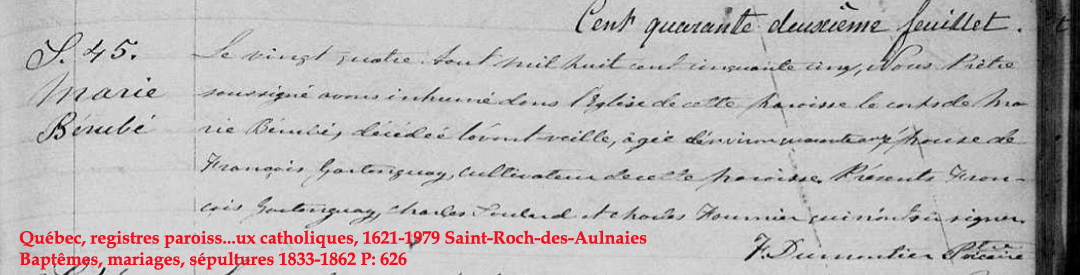 Cent quarante deuxième feuillet.
S. 45.
Marie
Bérubé
Le vingt quatre Aout mil huit cent cinquante cinq, Nous Prêtre
soussigné avons inhumé dans l'Eglise de cette paroisse le corps de Ma-
rie Bérubé, décédée l'avant-veille, âgée d'environ quarante épouse de
François Gastonguay, cultivateur de cette paroisse. Présents Fran-
çois Gastonguay, Charles et Charles Fournier qui n'ont su signer.
F. Dumontier Vicaire
Québec, registres paroiss...ux catholiques, 1621-1979 Saint-Roch-des-Aulnaies
Baptêmes, mariages, sépultures 1833-1862 P: 626